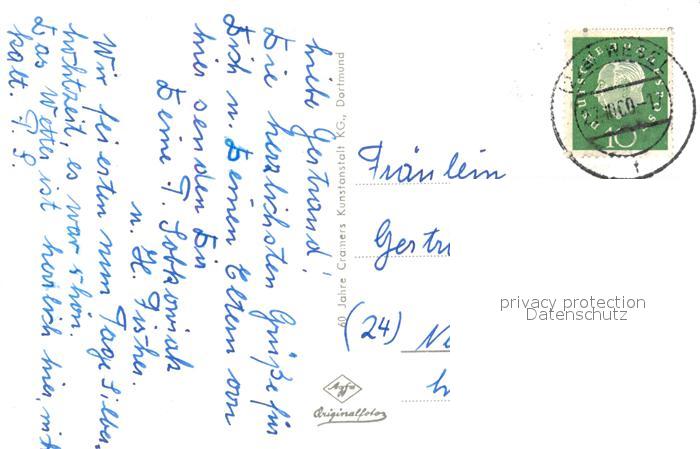 Liebe Gertraud!
Die herzlichsten Grüße für
Dich u. Deinen Eltern von
hier senden Dir
Deine T.
u. H. Fischer.
Wir feierten nun Tage Silber-
hochzeit, es war schön.
Das Wetter ist herrlich hier, nicht
kalt. T. S.
60 Jahre Cramers Kunstanstalt KG., Dortmund
Fräulein
Gertr
(24)
Agfa
Originalfoto
DEUTSCHE BUNDESPOST
10
privacy protection
Datenschutz